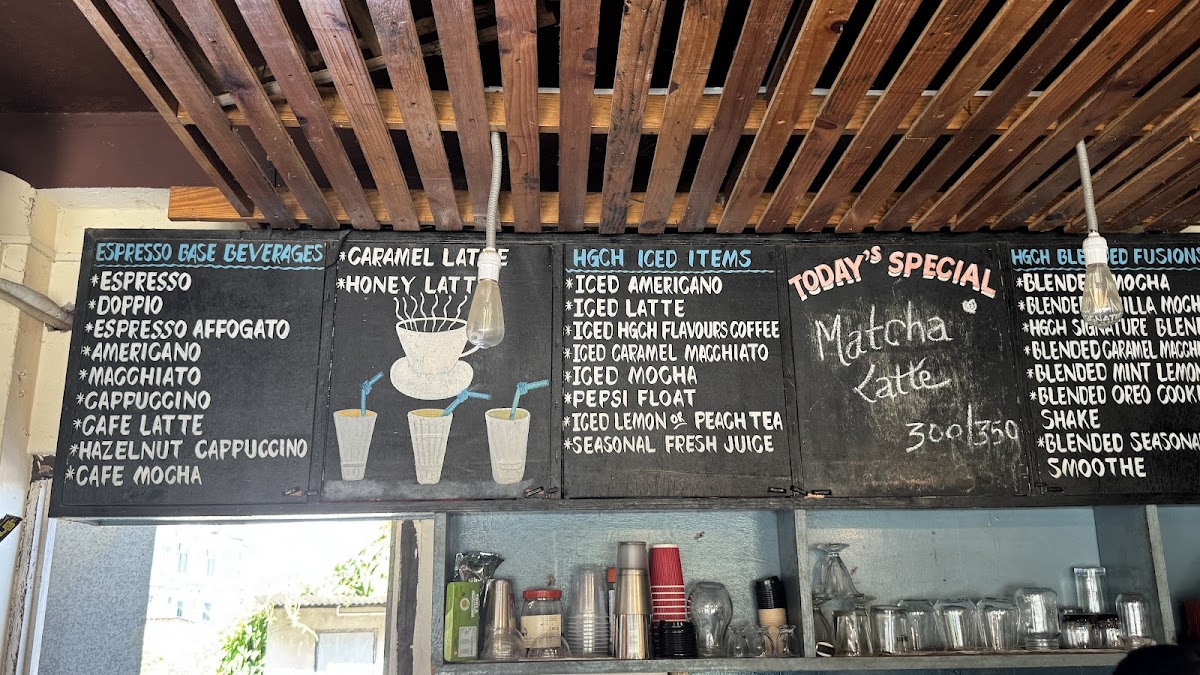 ESPRESSO BASE BEVERAGES
*ESPRESSO
*DOPPIO
*ESPRESSO AFFOGATO
*AMERICANO
*MACCHIATO
*CAPPUCCINO
*CAFE LATTE
*HAZELNUT CAPPUCCINO
*CAFE MOCHA
*CARAMEL LATTE
*HONEY LATTE
HGCH ICED ITEMS
*ICED AMERICANO
*ICED LATTE
*ICED HGCH FLAVOURS COFFEE
*ICED CARAMEL MACCHIATO
*ICED MOCHA
*PEPSI FLOAT
*ICED LEMON or PEACH TEA
*SEASONAL FRESH JUICE
TODAY'S SPECIAL
Matcha
Latte
300/350
HGCH BLENDED FUSIONS
*BLENDED MOCHA
*BLENDED VANILLA MOCHA
*HGCH SIGNATURE BLEN
*BLENDED CARAMEL MACCHI
*BLENDED MINT LEMON
*BLENDED OREO COOKI
SHAKE
*BLENDED SEASONA
SMOOTHE